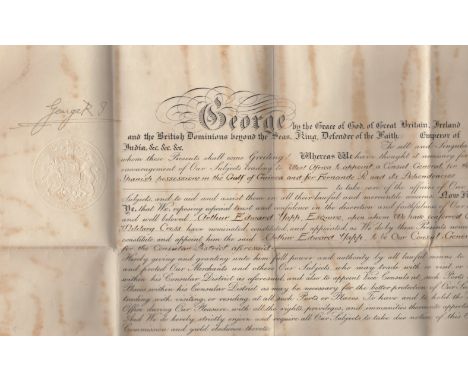 George R I
George by the Grace of God, of Great Britain, Ireland
and the British Dominions beyond the Seas, King, Defender of the Faith, Emperor of
India, &c. &c. &c. To all and Singular
whom these Presents shall come Greeting! Whereas We have thought it necessary for
encouragement of Our Subjects trading to West Africa to appoint a Consul General for
Spanish possessions in the Gulf of Guinea and for Fernando Po and its Dependencies
to take care of the affairs of Our
Subjects, and to aid and assist them in all their lawful and mercantile concerns Now
Ye, that We, reposing especial trust and confidence in the discretion and faithfulness of Our
and well beloved Arthur Edward Yapp, Esquire, upon whom We have conferred
Military Cross have nominated, constituted, and appointed as We do by these Presents nomin
constitute and appoint him the said Arthur Edward Yapp to be Our Consul-Gene
for the Consular District aforesaid
Hereby giving and granting unto him full power and authority by all lawful means to
and protect Our Merchants and others Our Subjects, who may trade with or visit or
within his Consular District as aforesaid, and also to appoint Vice Consuls at such Ports
Places within his Consular District as may be necessary for the better protection of Our Su
trading with, visiting, or residing at all such Ports or Places. To have and to hold the
Office during Our Pleasure, with all the rights, privileges, and immunities thereunto apperta
And We do hereby strictly enjoin and require all Our Subjects to take due notice of this
Commission and yield obedience thereto